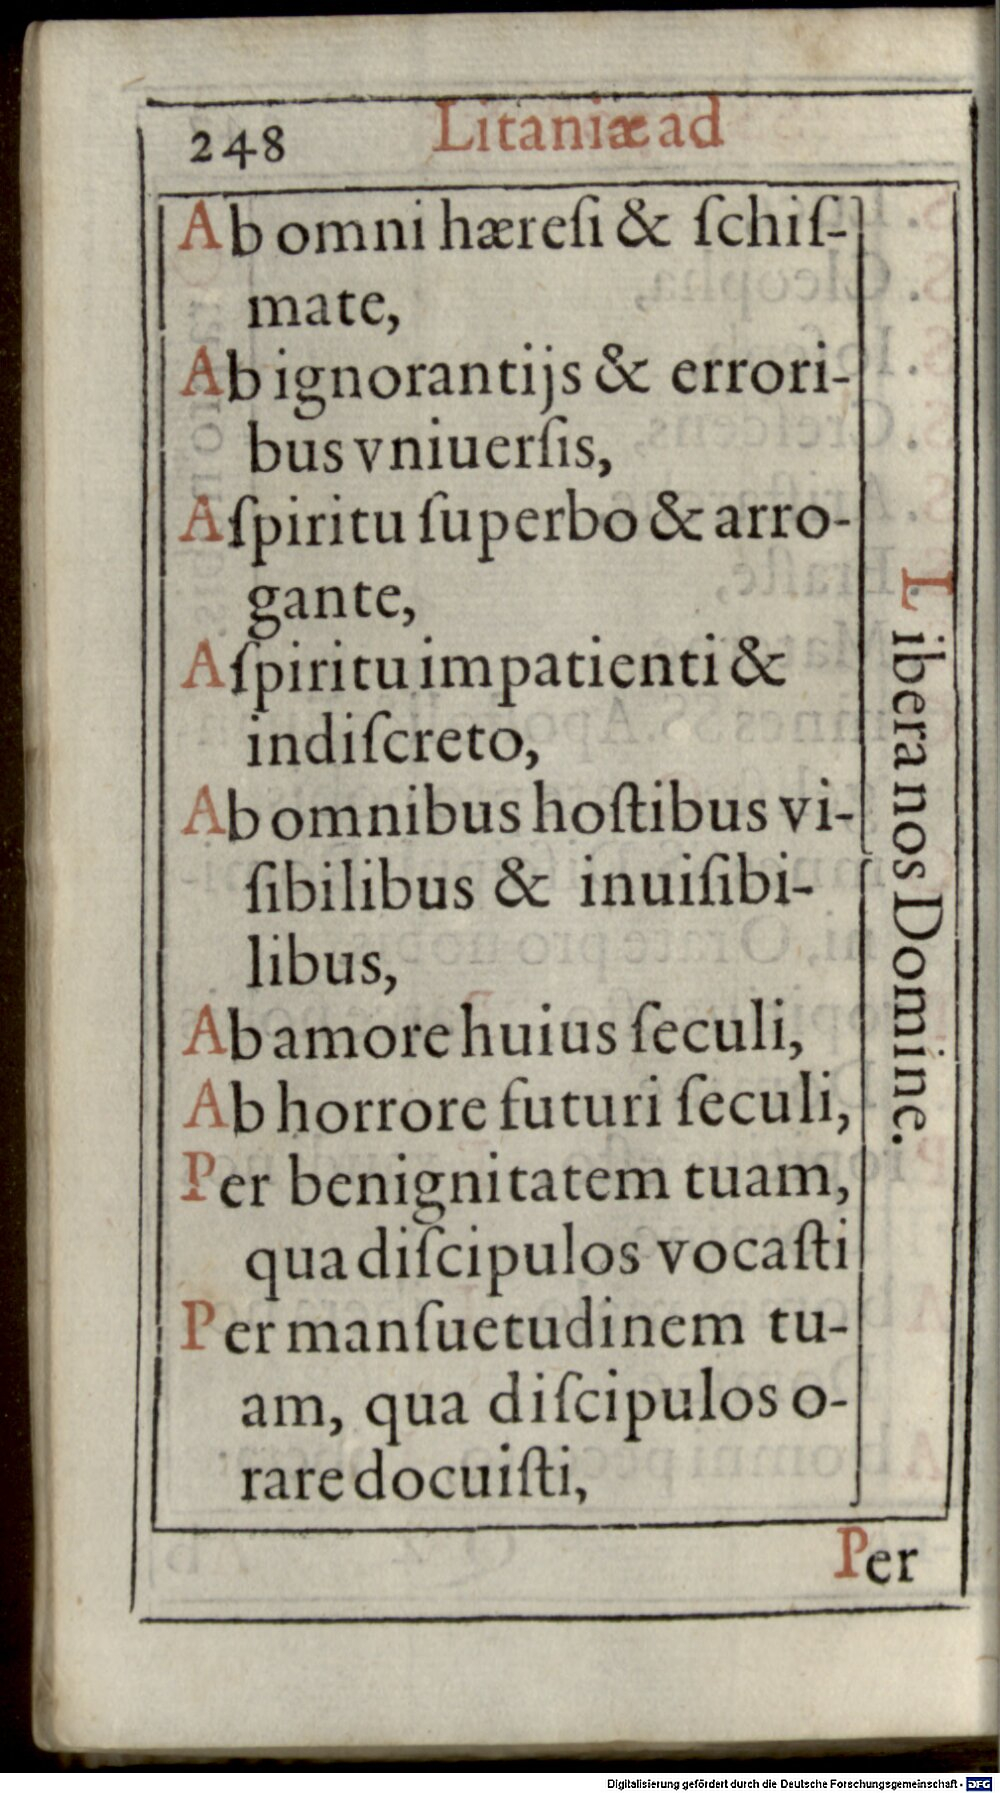 248 Litaniæ ad
Ab omni hæreſi & ſchiſ-
mate,
Ab ignorantijs & errori-
bus vniuerſis,
A ſpiritu ſuperbo & arro-
gante,
A ſpiritu impatienti &
indiſcreto,
Ab omnibus hoſtibus vi-
ſibilibus & inuiſibi-
libus,
Ab amore huius ſeculi,
Ab horrore futuri ſeculi,
Per benignitatem tuam,
qua diſcipulos vocaſti
Per manſuetudinem tu-
am, qua diſcipulos o-
rare docuiſti,
Libera nos Domine.
Per
Digitalisierung gefördert durch die Deutsche Forschungsgemeinschaft - DFG